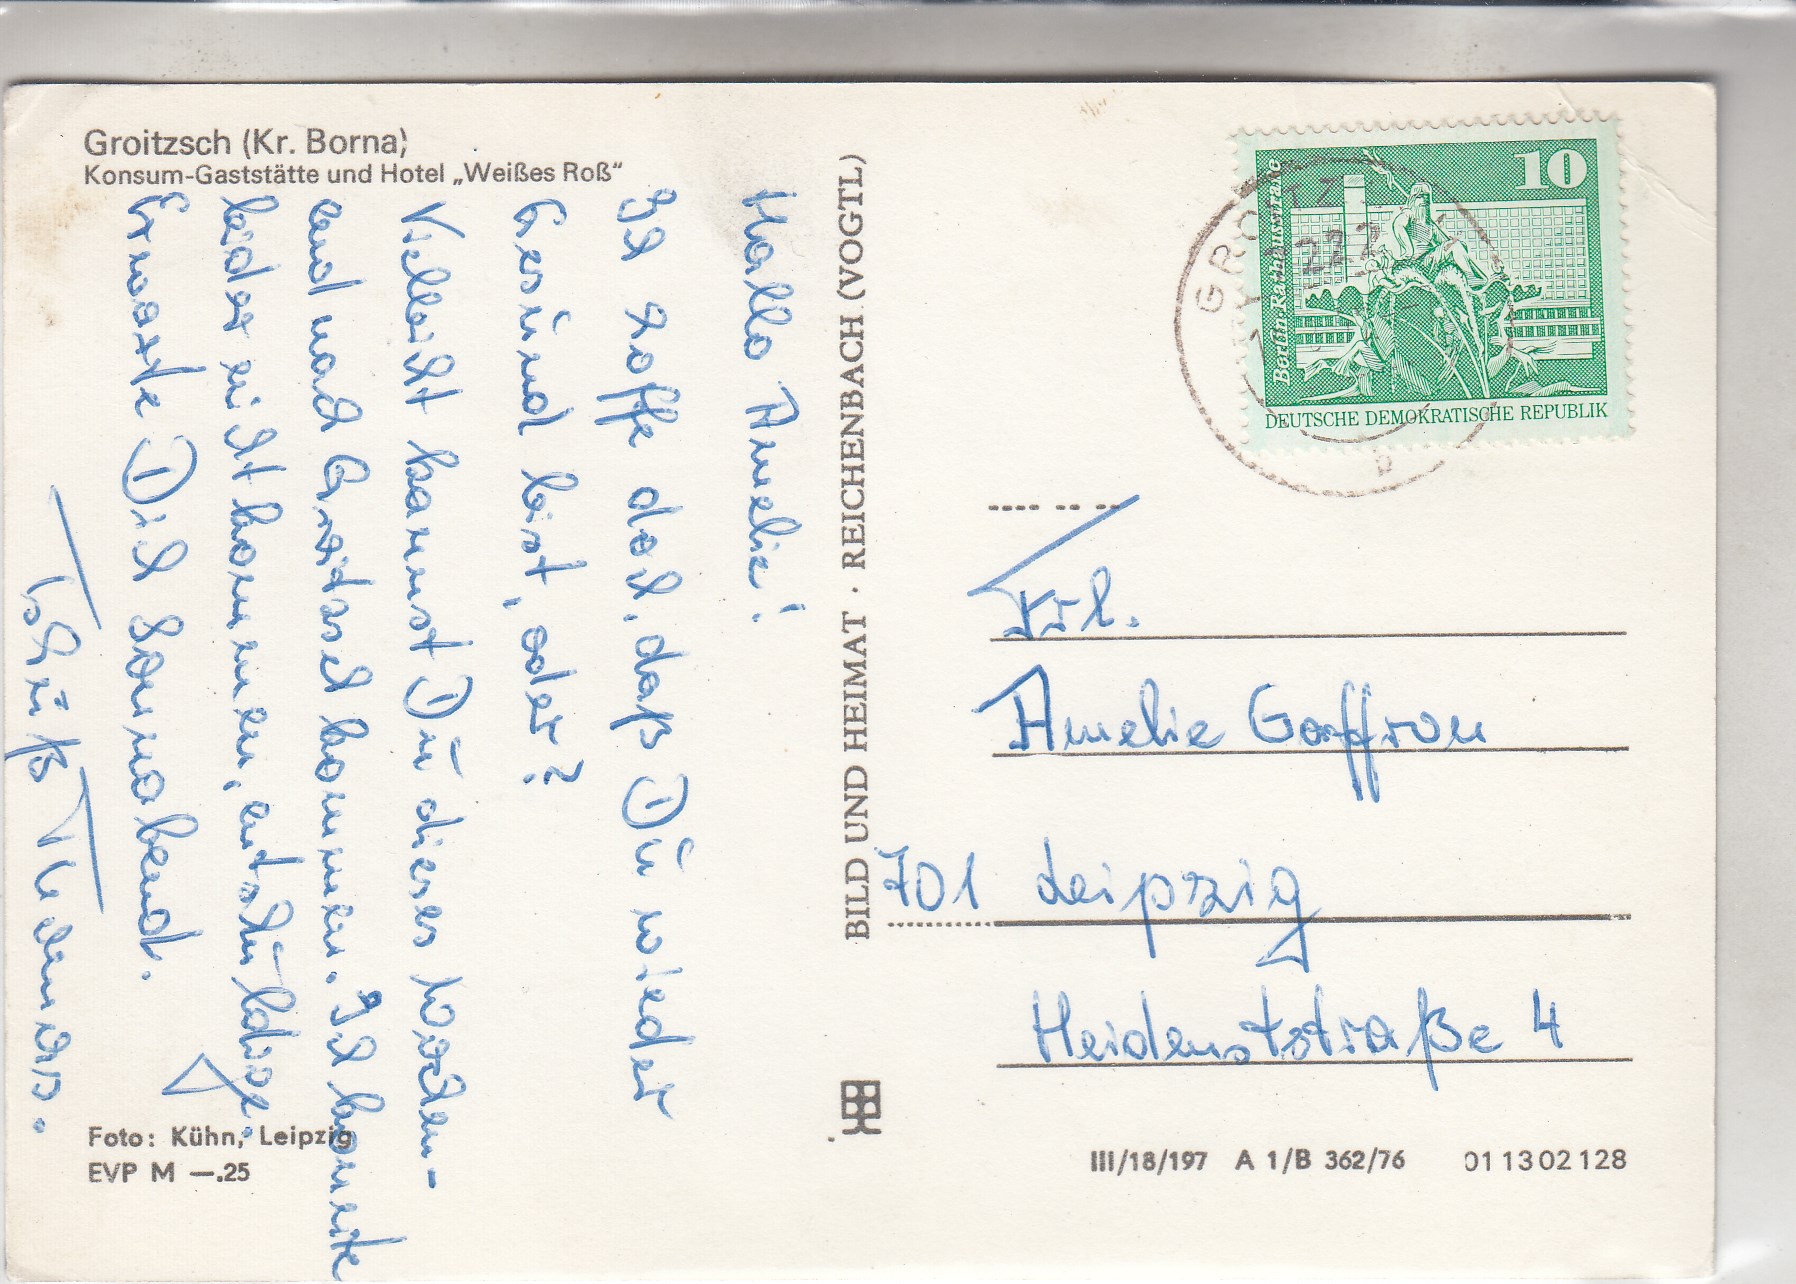 Groitzsch (Kr. Borna)
Konsum-Gaststätte und Hotel „Weißes Roß“
Hallo Amelie!
Ich hoffe doch, daß Du wieder
Gesund bist, oder?
Vielleicht kannst Du dieses Wochen-
end nach Groitzsch kommen. Ich konnte
leider nicht kommen, entschuldige.
Erwarte Dich Sonnabend.
Tschüß
Foto: Kühn, Leipzig
EVP M —.25
BILD UND HEIMAT · REICHENBACH (VOGTL)
10
Berlin-Rathausstraße
DEUTSCHE DEMOKRATISCHE REPUBLIK
GROITZ
22.2
b
Frl.
Amelie Gaffron
701 Leipzig
Heidenststraße 4
III/18/197 A 1/B 362/76 01 13 02 128